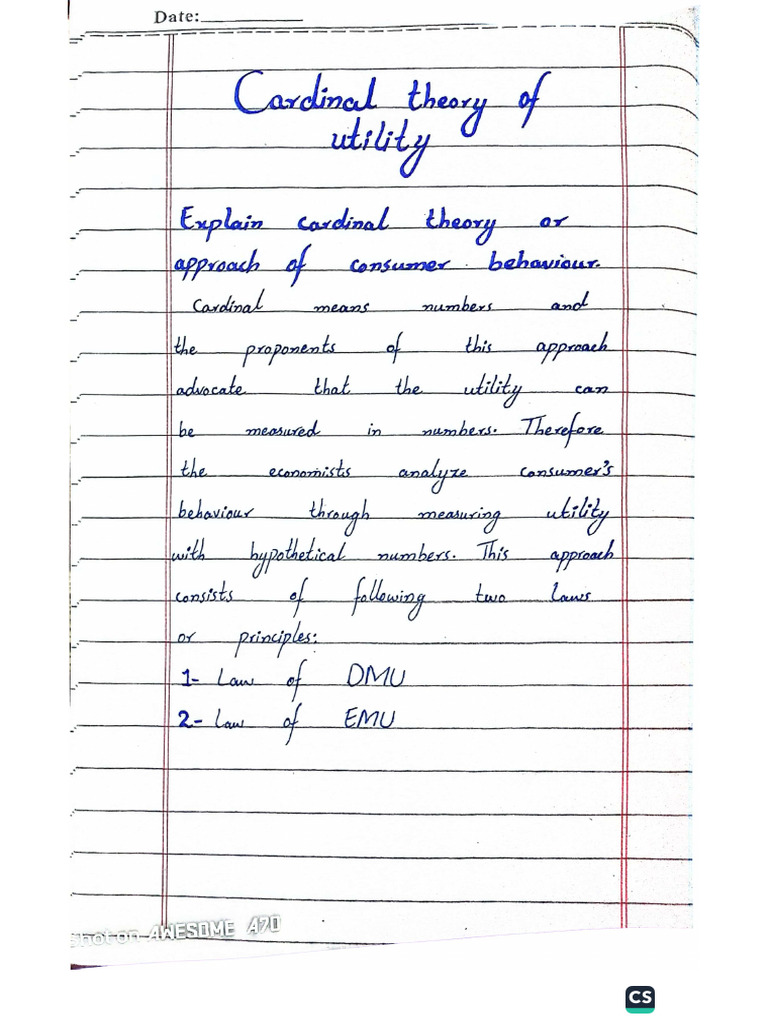 Date:
Cardinal theory of
utility
Explain cardinal theory or
approach of consumer behaviour.
Cardinal means numbers and
the proponents of this approach
advocate that the utility can
be measured in numbers. Therefore
the economists analyze consumer's
behaviour through measuring utility
with hypothetical numbers. This approach
consists of following two laws
or principles:
1- Law of DMU
2- Law of EMU
Shot on AWESOME A70
CS